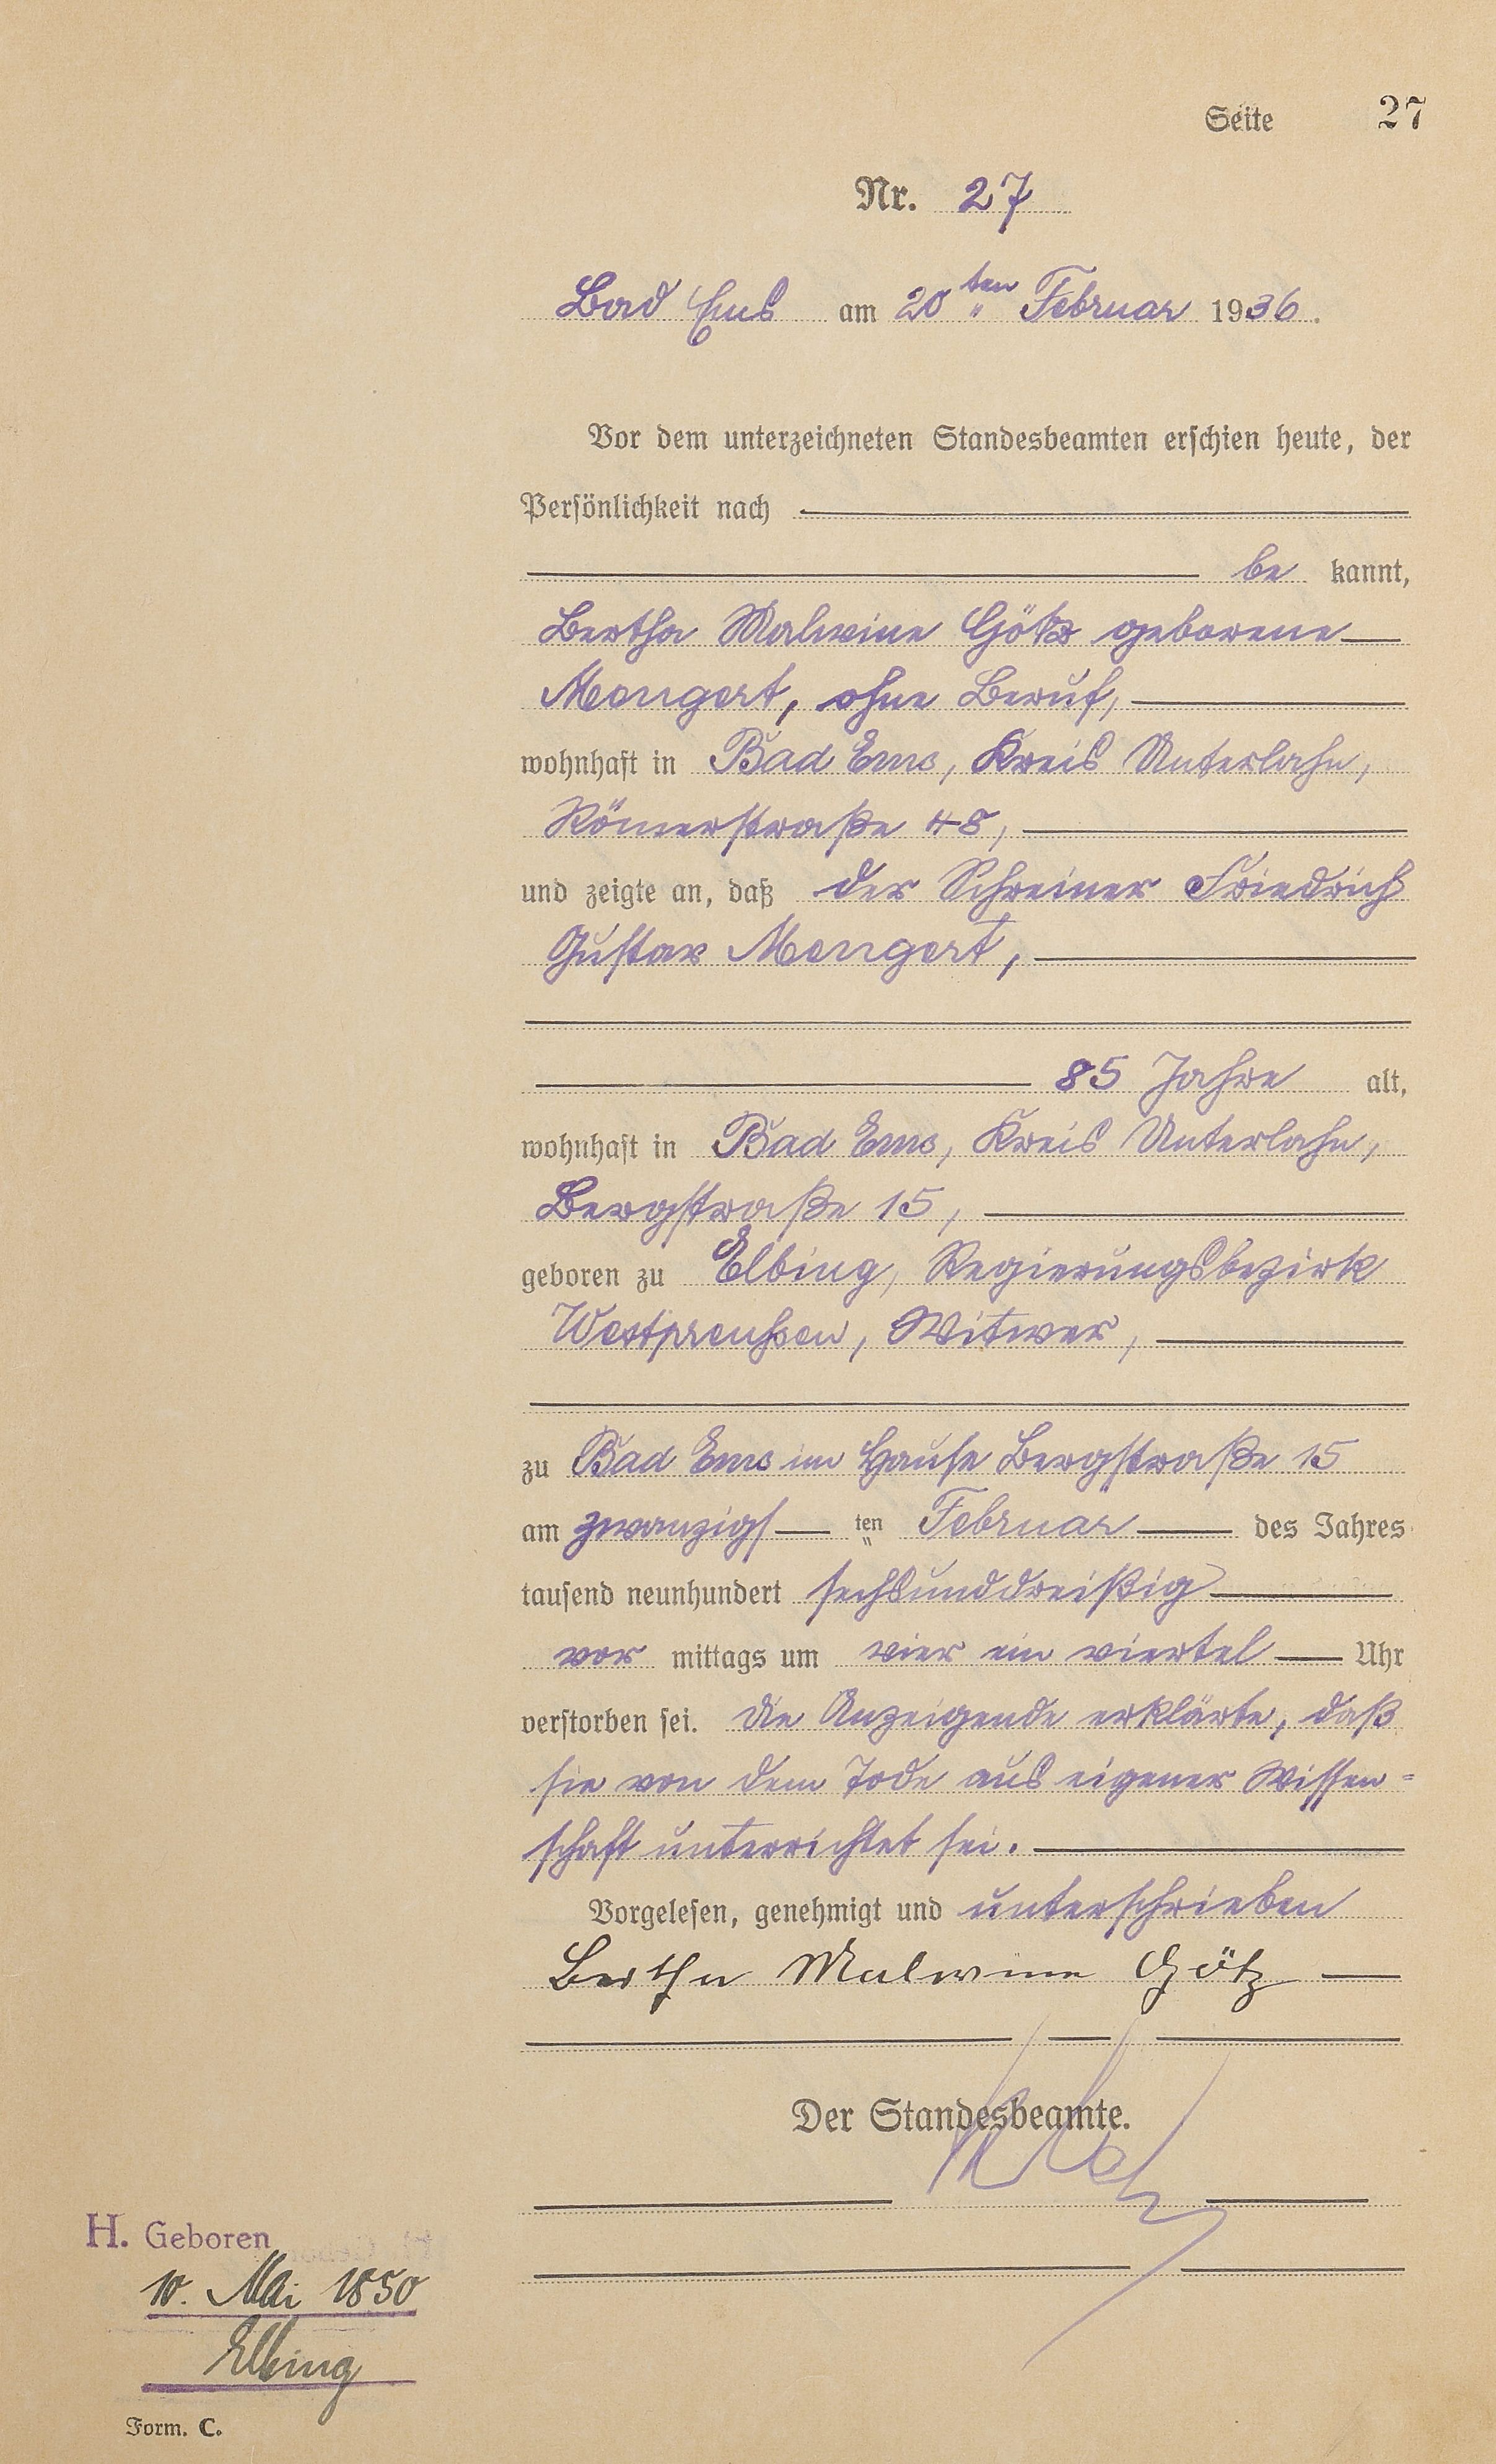 Seite 27
Nr. 27
Bad Ems am 20ten Februar 1936.
Vor dem unterzeichneten Standesbeamten erschien heute, der
Persönlichkeit nach
be kannt,
Bertha Malwine Götz geborene
Mengert, ohne Beruf,
wohnhaft in Bad Ems, Kreis Unterlahn,
Römerstraße 48,
und zeigte an, daß der Schreiner Friedrich
Gustav Mengert,
85 Jahre alt,
wohnhaft in Bad Ems, Kreis Unterlahn,
Bergstraße 15,
geboren zu Elbing, Regierungsbezirk
Westpreußen, Witwer,
zu Bad Ems im Hause Bergstraße 15
am zwanzigs ten Februar des Jahres
tausend neunhundert sechsunddreißig
vor mittags um vier ein viertel Uhr
verstorben sei. Die Anzeigende erklärte, daß
sie von dem Tode aus eigener Wissen=
schaft unterrichtet sei.
Vorgelesen, genehmigt und unterschrieben
Bertha Malwine Götz
Der Standesbeamte.
H. Geboren
10. Mai 1850
Elbing
Form. C.